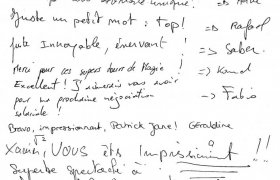 unique. => Anne
Juste un petit mot : top! => Rafael
juste Incroyable, énervant ! => Saber
Merci pour les supers tours de Magie ! => Kamel
Excellent ! J'aimerais vous avoir
pour ma prochaine négociation => Fabio
salariale !
Bravo, impressionnant, Patrick Jane! Géraldine
Vous êtes Impressionnant !!!
Superbe spectacle à